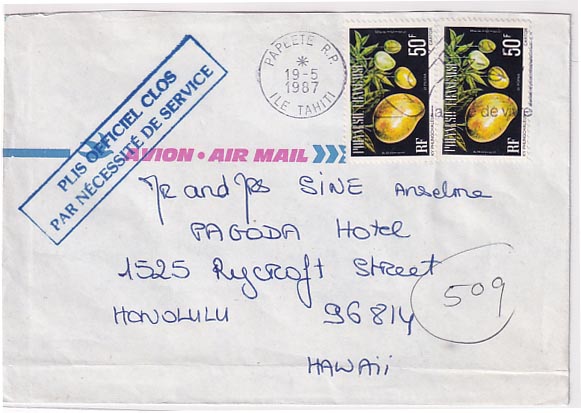 PAPEETE R.P.
19-5
1987
ILE TAHITI
50F
POLYNESIE FRANCAISE
RF
50F
POLYNESIE FRANCAISE
RF
de vivre
PLIS OFFICIEL CLOS
PAR NÉCESSITÉ DE SERVICE
AVION • AIR MAIL
Mr and Mrs SINE Anselme
PAGODA Hotel
1525 Rycroft Street
509
HONOLULU 96814
HAWAii